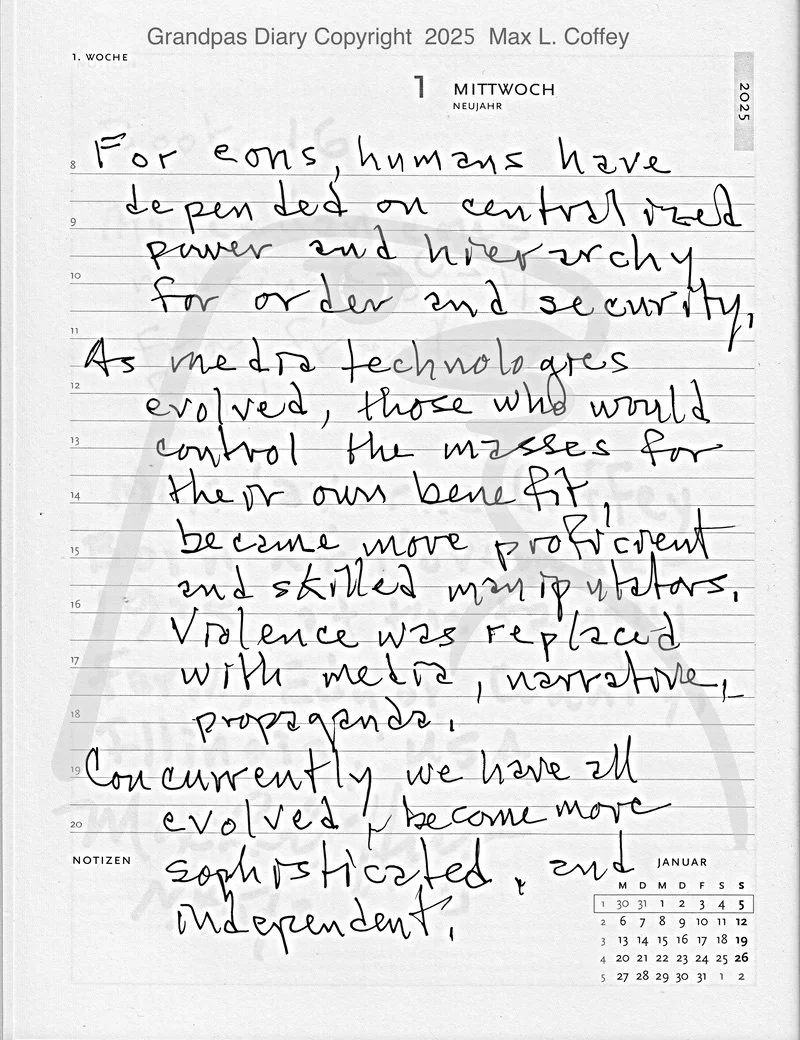 Grandpas Diary Copyright 2025 Max L. Coffey
1. WOCHE
1 MITTWOCH
NEUJAHR
2025
8 For eons, humans have
depended on centralized
9 power and hierarchy
10 for order and security,
11 As media technologies
12 evolved, those who would
13 control the masses for
14 their own benefit,
became more proficient
15 and skilled manipulators.
16 Violence was replaced
17 with media, narrative,
18 propaganda.
19 Concurrently we have all
20 evolved, become more
NOTIZEN sophisticated, and
independent.
JANUAR
M D M D F S S
1 30 31 1 2 3 4 5
2 6 7 8 9 10 11 12
3 13 14 15 16 17 18 19
4 20 21 22 23 24 25 26
5 27 28 29 30 31 1 2